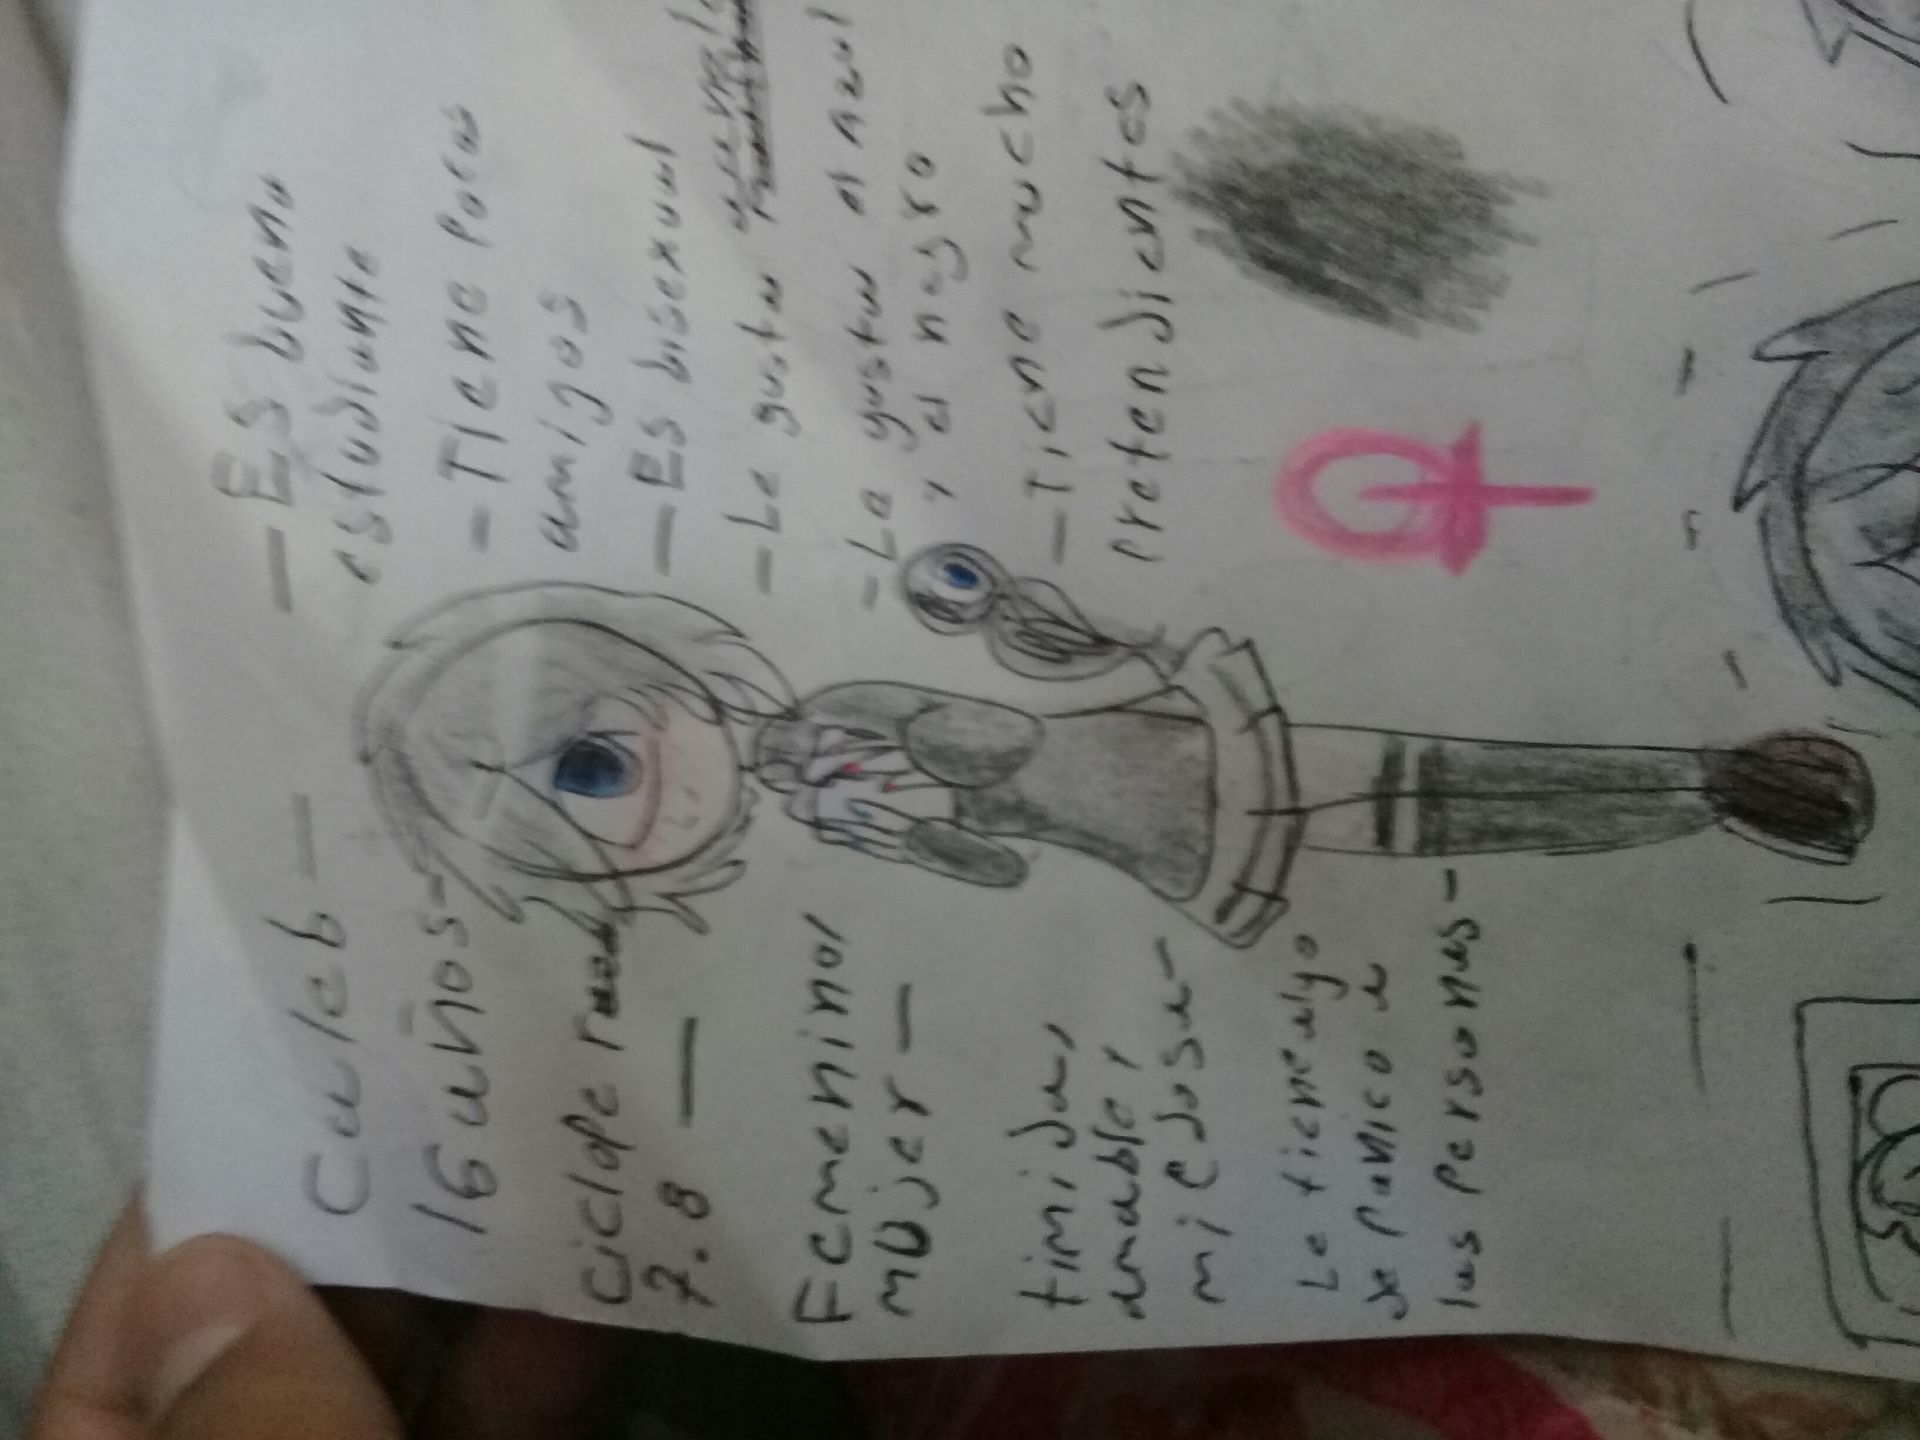 Cauleb -
16 años -
Ciclope
7.8 -
Femenino/
mujer -
timida,
amable y
miedosa -
Le tiene algo
de panico a
las personas -
- ES buena
estudiante
- Tiene pocos
amigos
- ES bisexual
- Le gusta
- Le gusta el azul
y el negro
- Tiene mucho
pretendientes